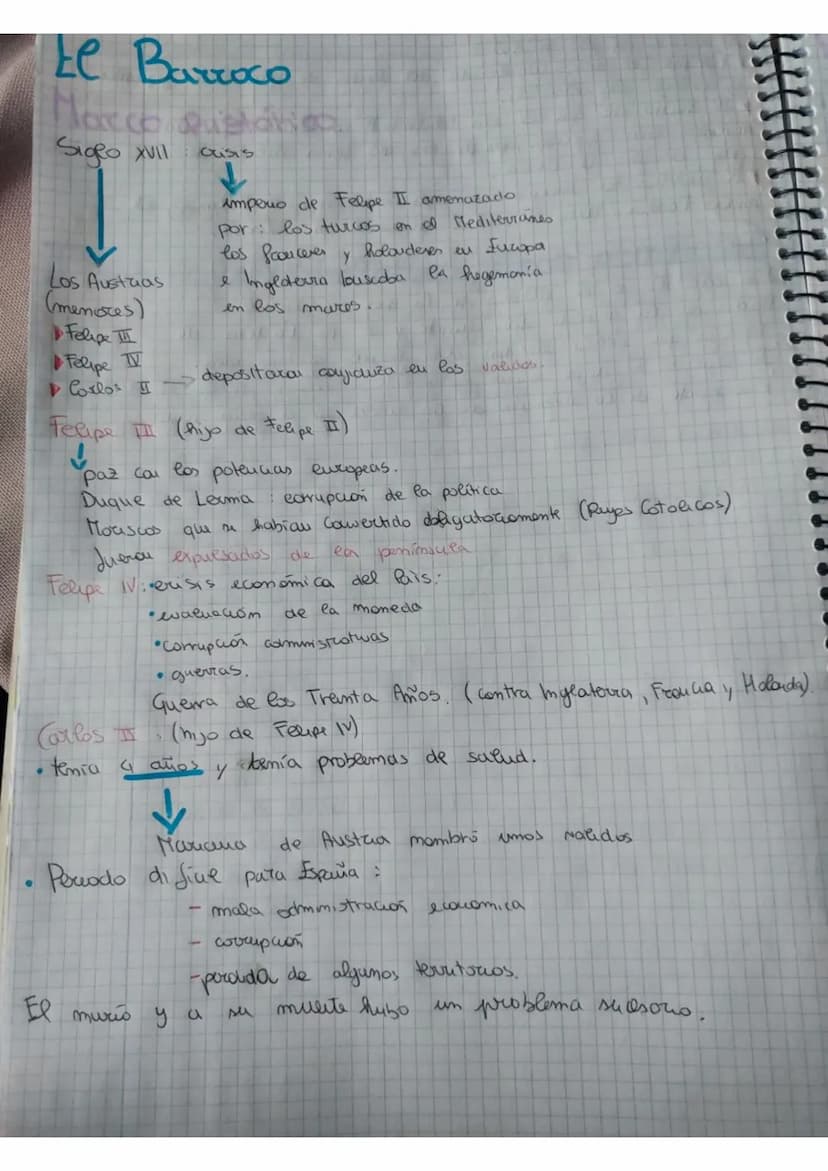 El Barroco
Marco Histórico
Siglo XVII : crisis
imperio de Felipe II amenazado
por : los turcos en el Mediterráneo
los franceses y holandeses en Europa
e Inglaterra buscaba la hegemonía
en los mares.
Los Austrias
(menores)
Felipe III
Felipe IV
Carlos II → depositaron confianza en los validos.
Felipe III (hijo de Felipe II)
paz con las potencias europeas.
Duque de Lerma : corrupción de la política
Moriscos que se habían convertido obligatoriamente (Reyes Catolicos)
fueron expulsados de la península
Felipe IV : crisis económica del País:
• evaluación de la moneda
• corrupción administrativas
• guerras.
Guerra de los Treinta Años. (contra Inglaterra, Francia y Holanda)
Carlos II : (hijo de Felipe IV)
• tenía 4 años y tenía problemas de salud.
Mariana de Austria nombró unos validos
• Periodo dificil para España :
- mala administración económica
- corrupción
- perdida de algunos territorios.
El murió y a su muerte hubo un problema sucesorio.